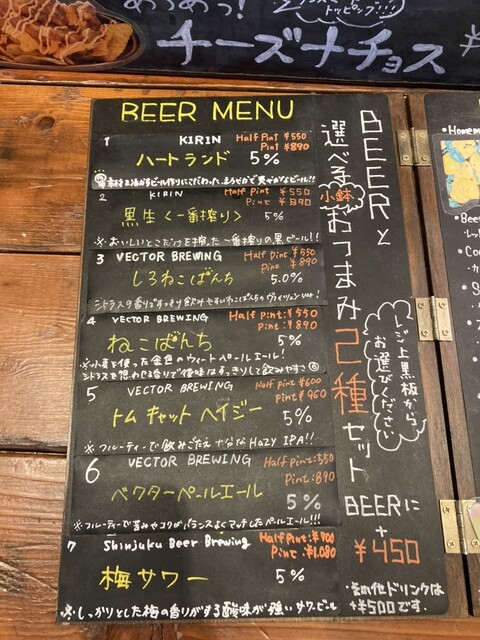 チーズナチョス
¥
BEER MENU
1 KIRIN Half Pint ¥550
Pint ¥890
ハートランド 5%
2 KIRIN Half Pint ¥550
Pint ¥890
黒生〈一番搾り〉 5%
※おいしいとこだけを搾った一番搾りの黒ビール!!
3 VECTOR BREWING Half Pint ¥550
Pint ¥890
しろねこぱんち 5.0%
4 VECTOR BREWING Half Pint:¥550
Pint:¥890
ねこぱんち 5%
※小麦を使った金色のウィートペールエール!
シトラスを想わせる香りで後味はすっきりして飲みやすさ◎
5 VECTOR BREWING Half Pint:¥600
Pint:¥960
トムキャットヘイジー 5%
※フルーティーで飲みごたえ十分なHazy IPA!!
6 VECTOR BREWING Half Pint:550
Pint:890
ベクターペールエール 5%
※フルーティーで苦みやコクがバランスよくマッチしたペールエール!!!
7 Shinjuku Beer Brewing Half Pint:¥700
Pint:¥1.080
梅サワー 5%
※しっかりとした梅の香りがする酸味が強いサワービール
BEERと
選べる小鉢おつまみ2種セット
レジ上黒板から
お選びください
BEERに
+
¥450
※その他ドリンクは
+¥500です.